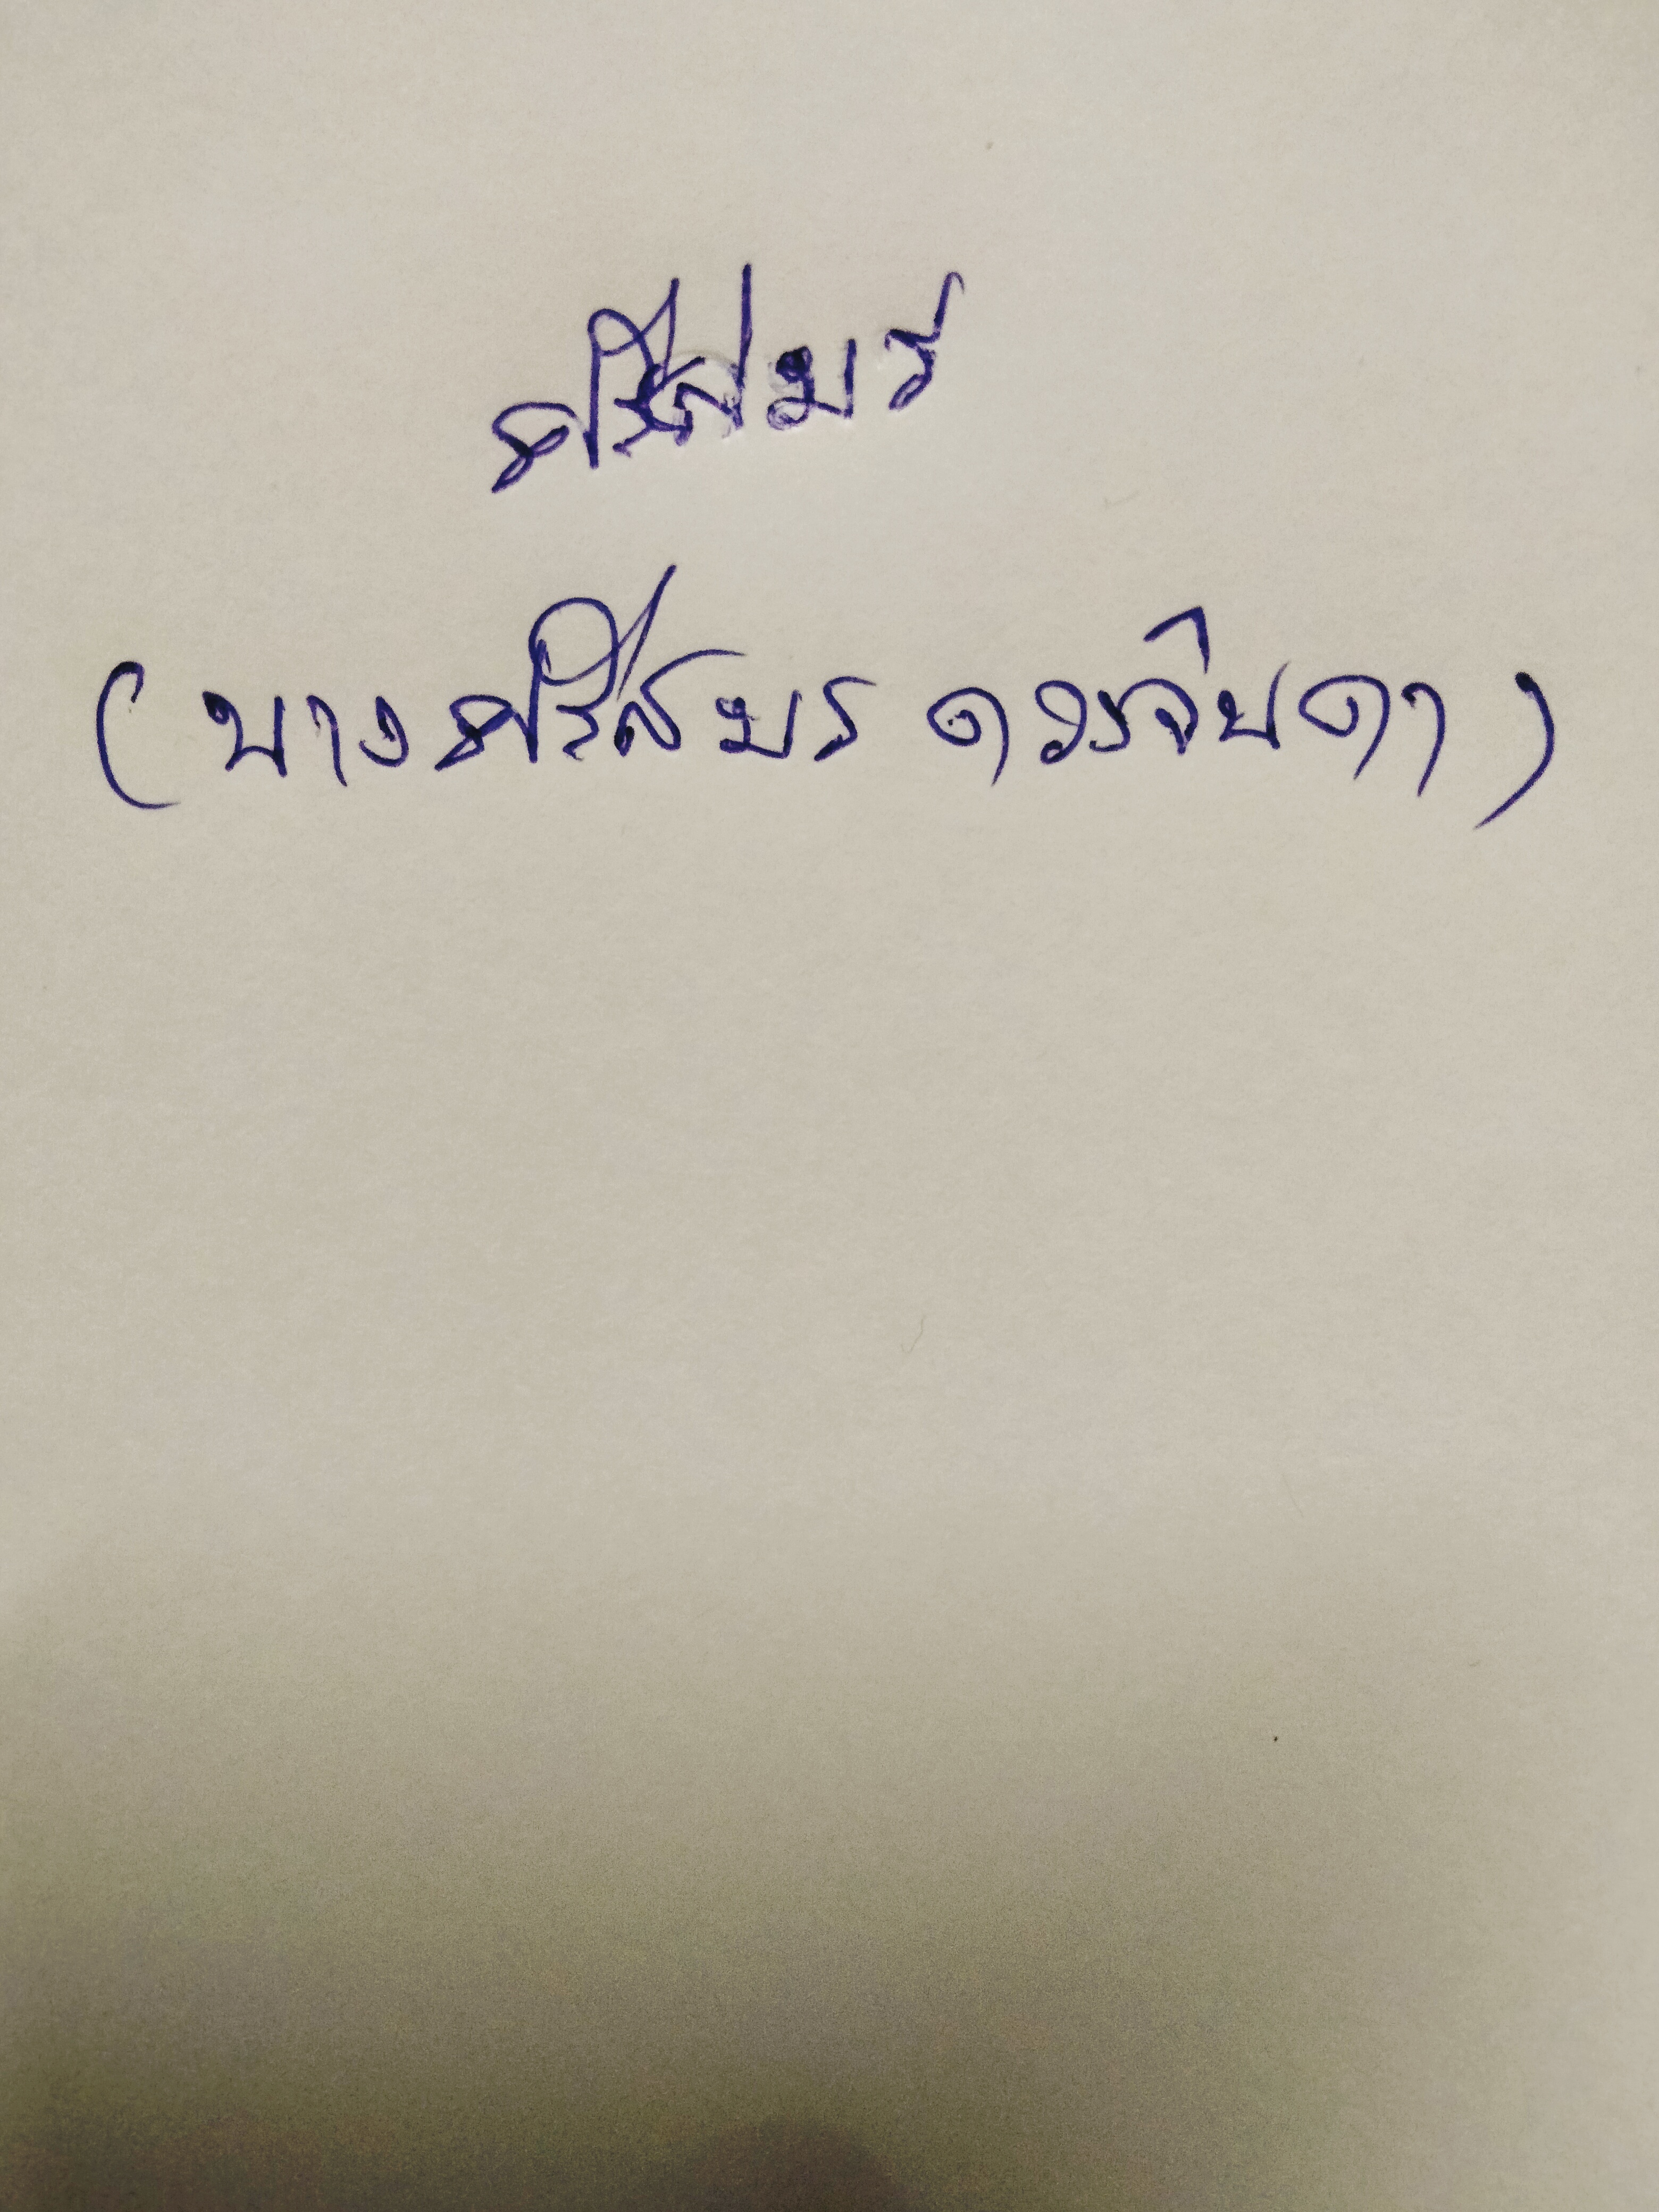 ศรีสมร
(นางศรีสมร ดวงจินดา)